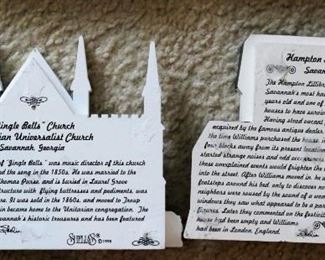 "Jingle Bells" Church
ian Universalist Church
Savannah, Georgia
of "Jingle Bells" was music director of this church
ed the song in the 1850s. He was married to the
Thomas Purse, and is buried in Laurel Grove
tructure with flying buttresses and pediments, was
re. It was sold in the 1860s, and moved to Troup
ain became to the Unitarian congregation. The
vannah's historic treasures and has been featured
SHELIA'S © 1998
Hampton
Sava
The Hampton Lillibr
Savannah's most ha
years old and one of
houses to have survive
Having stood vacant
acquired by the famous antique dealer
the tiny Williams purchased the house,
four blocks away from its present locatio
started strange noises and odd occurren
these unexplained events would frighten the
into the street. After Williams moved in, he
footsteps around his bed, only to discover no
neighbors were aroused by the sound of a wo
windows saw what appeared to be a par
figures. Later they commented on the festiviti
house had been empty and Williams
had been in London, England.